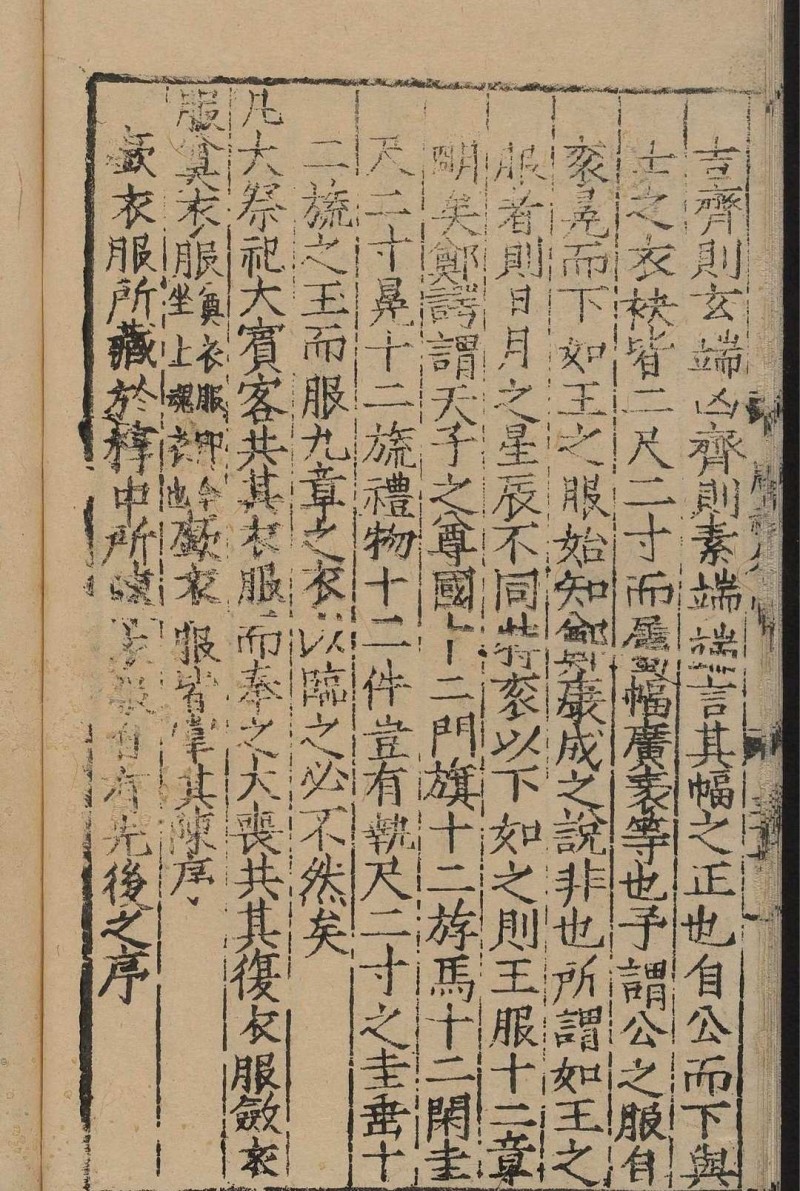 吉齊則玄端凶齊則素端端言其幅之正也自公而下與
士之衣袂皆二尺二寸而屬幅廣袤等也予謂公之服自
衮冕而下如王之服始知鄭康成之說非也所謂如王之
服者則日月之星辰不同特衮以下如之則王服十二章
明矣鄭謂天子之尊國十二門旗十二斿馬十二閑圭
尺二寸冕十二旒禮物十二件豈有執尺二寸之圭垂十
二旒之玉而服九章之衣以臨之必不然矣
凡大祭祀大賓客共其衣服而奉之大喪共其復衣服斂衣
服奠衣服奠衣服即今坐上魂衣也廞衣服皆掌其陳序
廞衣服所藏於椁中所陳衣服自有先後之序